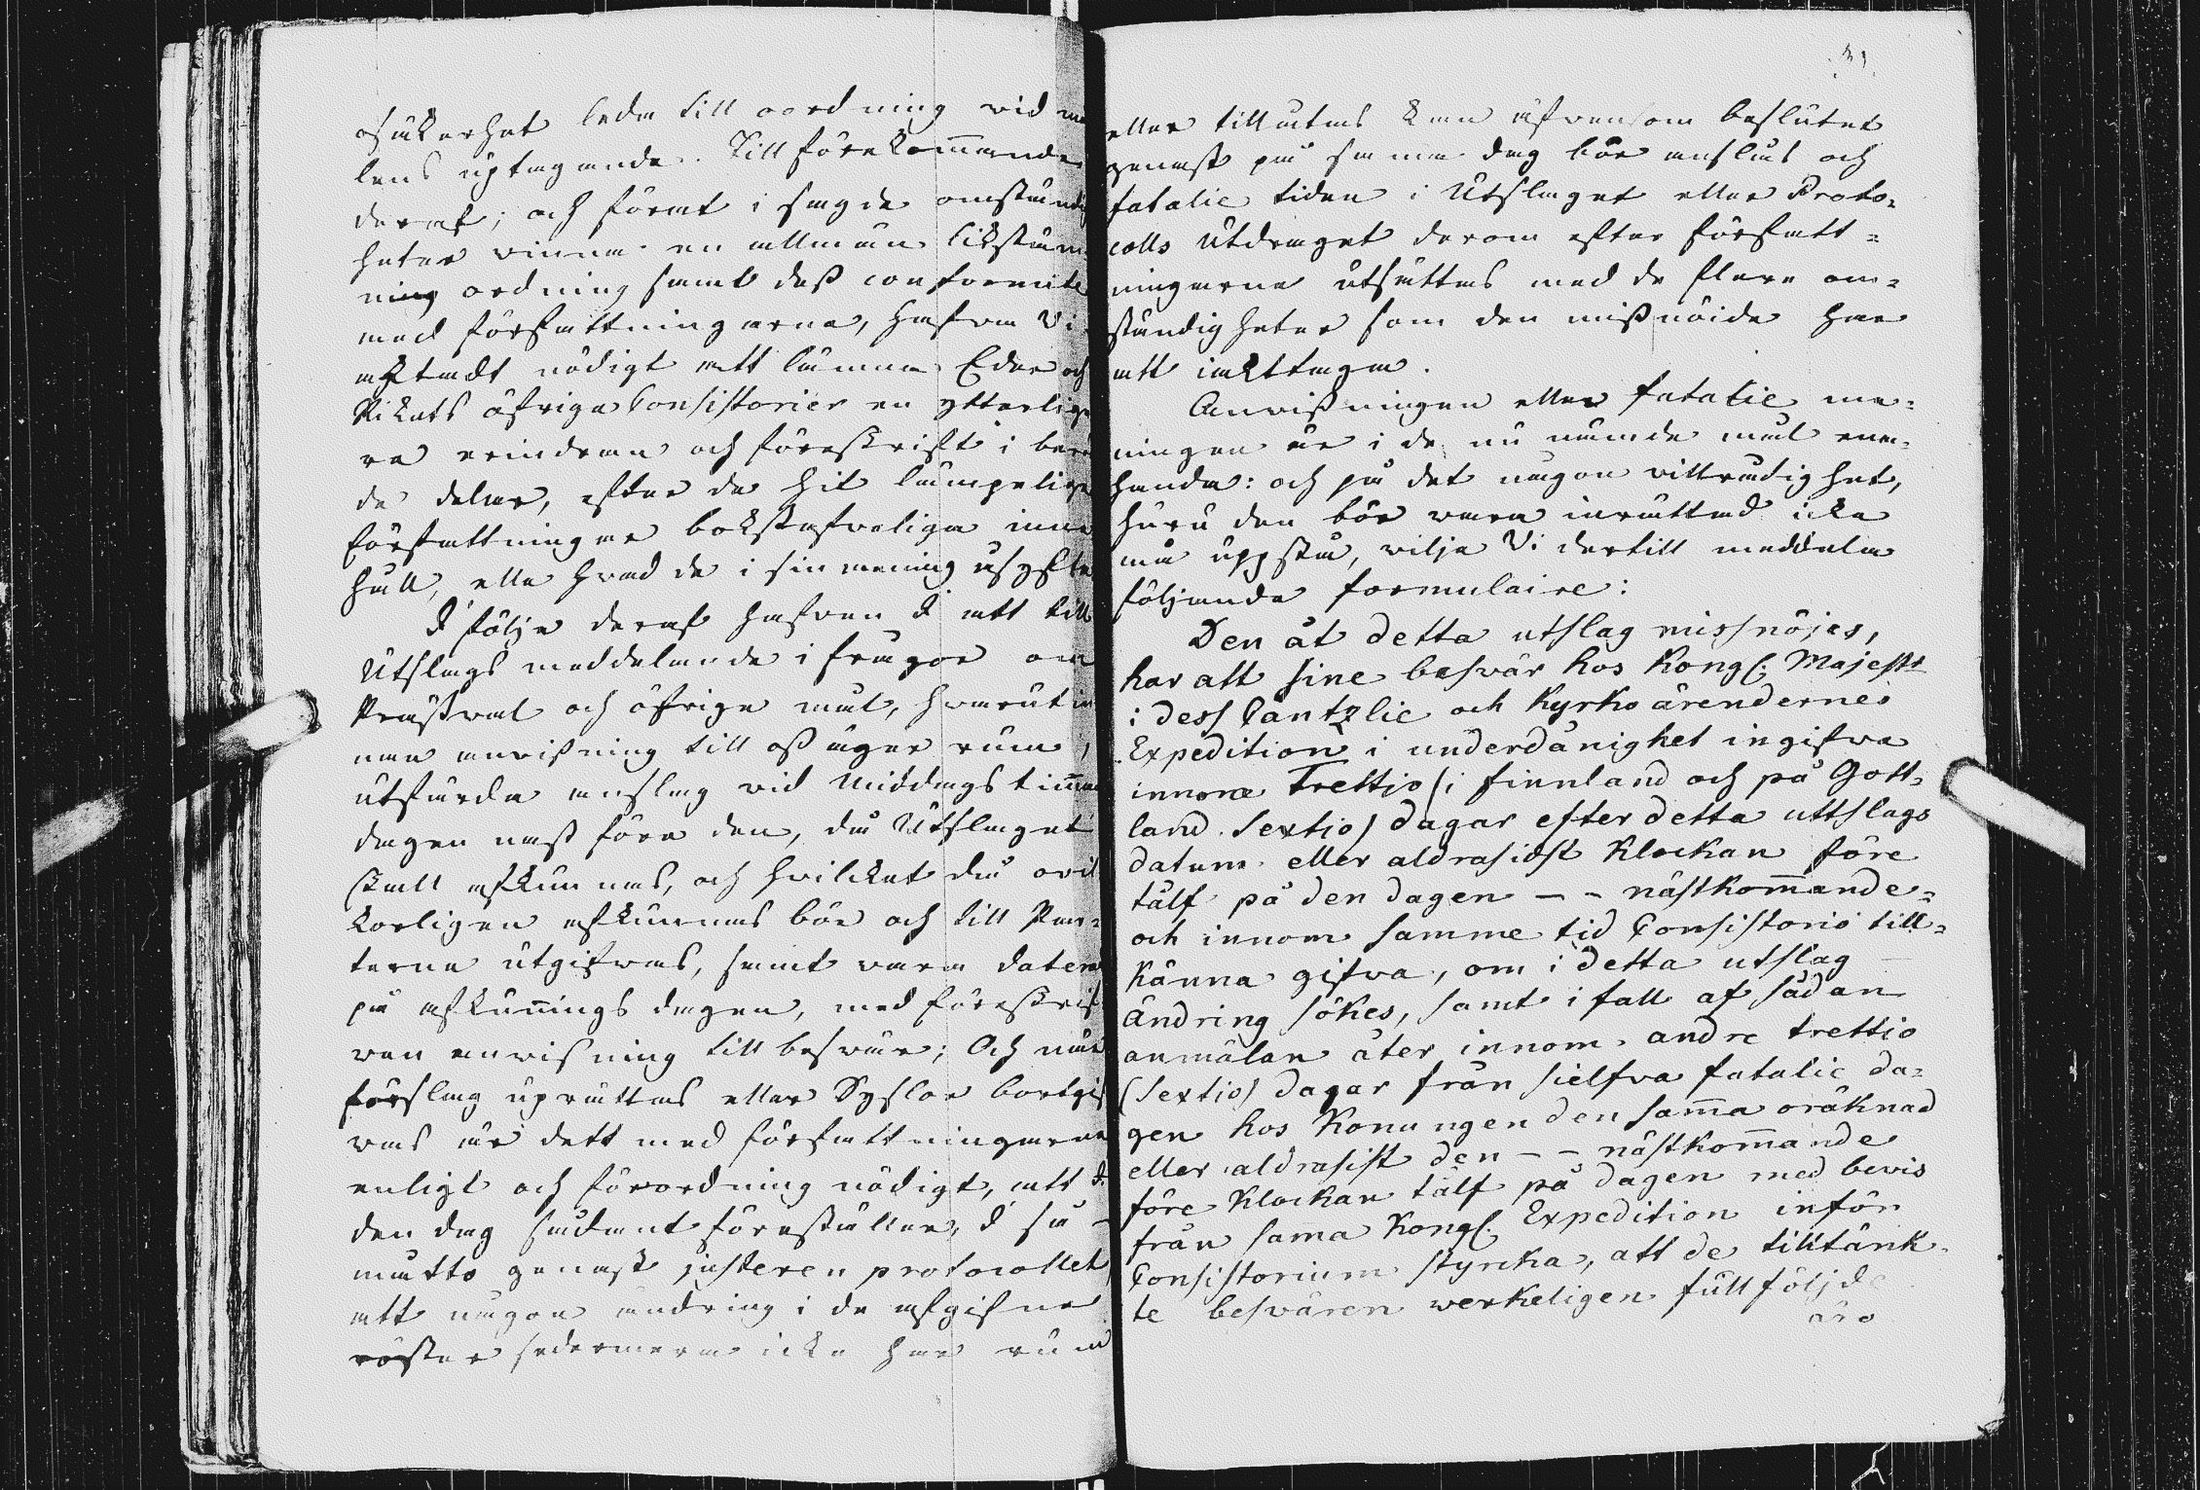 osäkerhet leda till oordning vid må
lens uptagande. Till förekommande
deraf; och föratt i sagde omständig
heter vinna en allmän likstäm
ning ordning samt dess conformite
med författningarna, hafva Vi
aktadt nödigt att lämna Eder och
Rikets öfriga Consistorier en ytterliga
re erindran och föreskrift i berör
de delar, efter de hit lämpeliga
författningar bokstafveliga inne
håll, ella hvad de i sin mening åsyfta
I följe deraf hafven I att till
Utslags meddelande i frågor om
Prästval och öfriga mål, hvarutin
nan anvisning till oss äger rum,
utfärda anslag vid Middags timman
dagen näst före den, då Utslaget
skall afkunnas, och hvilcket då ovil
korligen afkunnas bör och till Par-
terne utgifwas, samt vara datera
på afkunnings dagen, med föreskrif
ven anvisning till besvär; Och når
förslag uprättas eller Syslor bortgif
vas är dett med författningarna
enligt och för ordning nödigt, att I
den dag sådant föreställer, I så-
mätto genast justeren protocollet
att någon ändring i de afgifne
röster sedermera icke har rum
31
eller tillåtas kan äfvensom beslutet
genast på samma dag bör anslås och
fatalie tiden i Utslaget eller Proto-
colls Utdraget derom efter författ-
ningarna utsättas med de flere om-
ständigheter som den missnöide har
att iakttaga.
Anvisningen eller fatalie me-
ningen är i de nu nämde mål enae-
handa: och på det någon villrådighet,
huru den bör vara inrättad icke
må uppstå, vilje Vi dertill meddela
följande formulaire:
Den åt detta utslag missnöjes,
har att sine besvär hos Kongl. Majestt
i dess Cantzlie och Kyrko ärendernes
Expedition i underdånighet ingifva
innom Trettjo (i Finnland och på Gott-
land. Sextio) dagar efter detta uttslags
datum eller aldrasidst Klockan före
tålf på den dagen -- nästkommande-
och innom samme tid Consistorio till-
känna gifva, om i detta utslag
ändring sökes, samt i fall af sådan
anmälan åter innom andre trettio
(Sextio) dagar från sielfva fatalie da-
gen hos Konungen den samma oräknad
eller aldrasist den -- nästkommande
före Klockan tålf på dagen med bevis
från sama Kongl. Expedition inför
Consistorium styrcka, att de tilltänk-
te besvären verkeligen fullföljde
äro